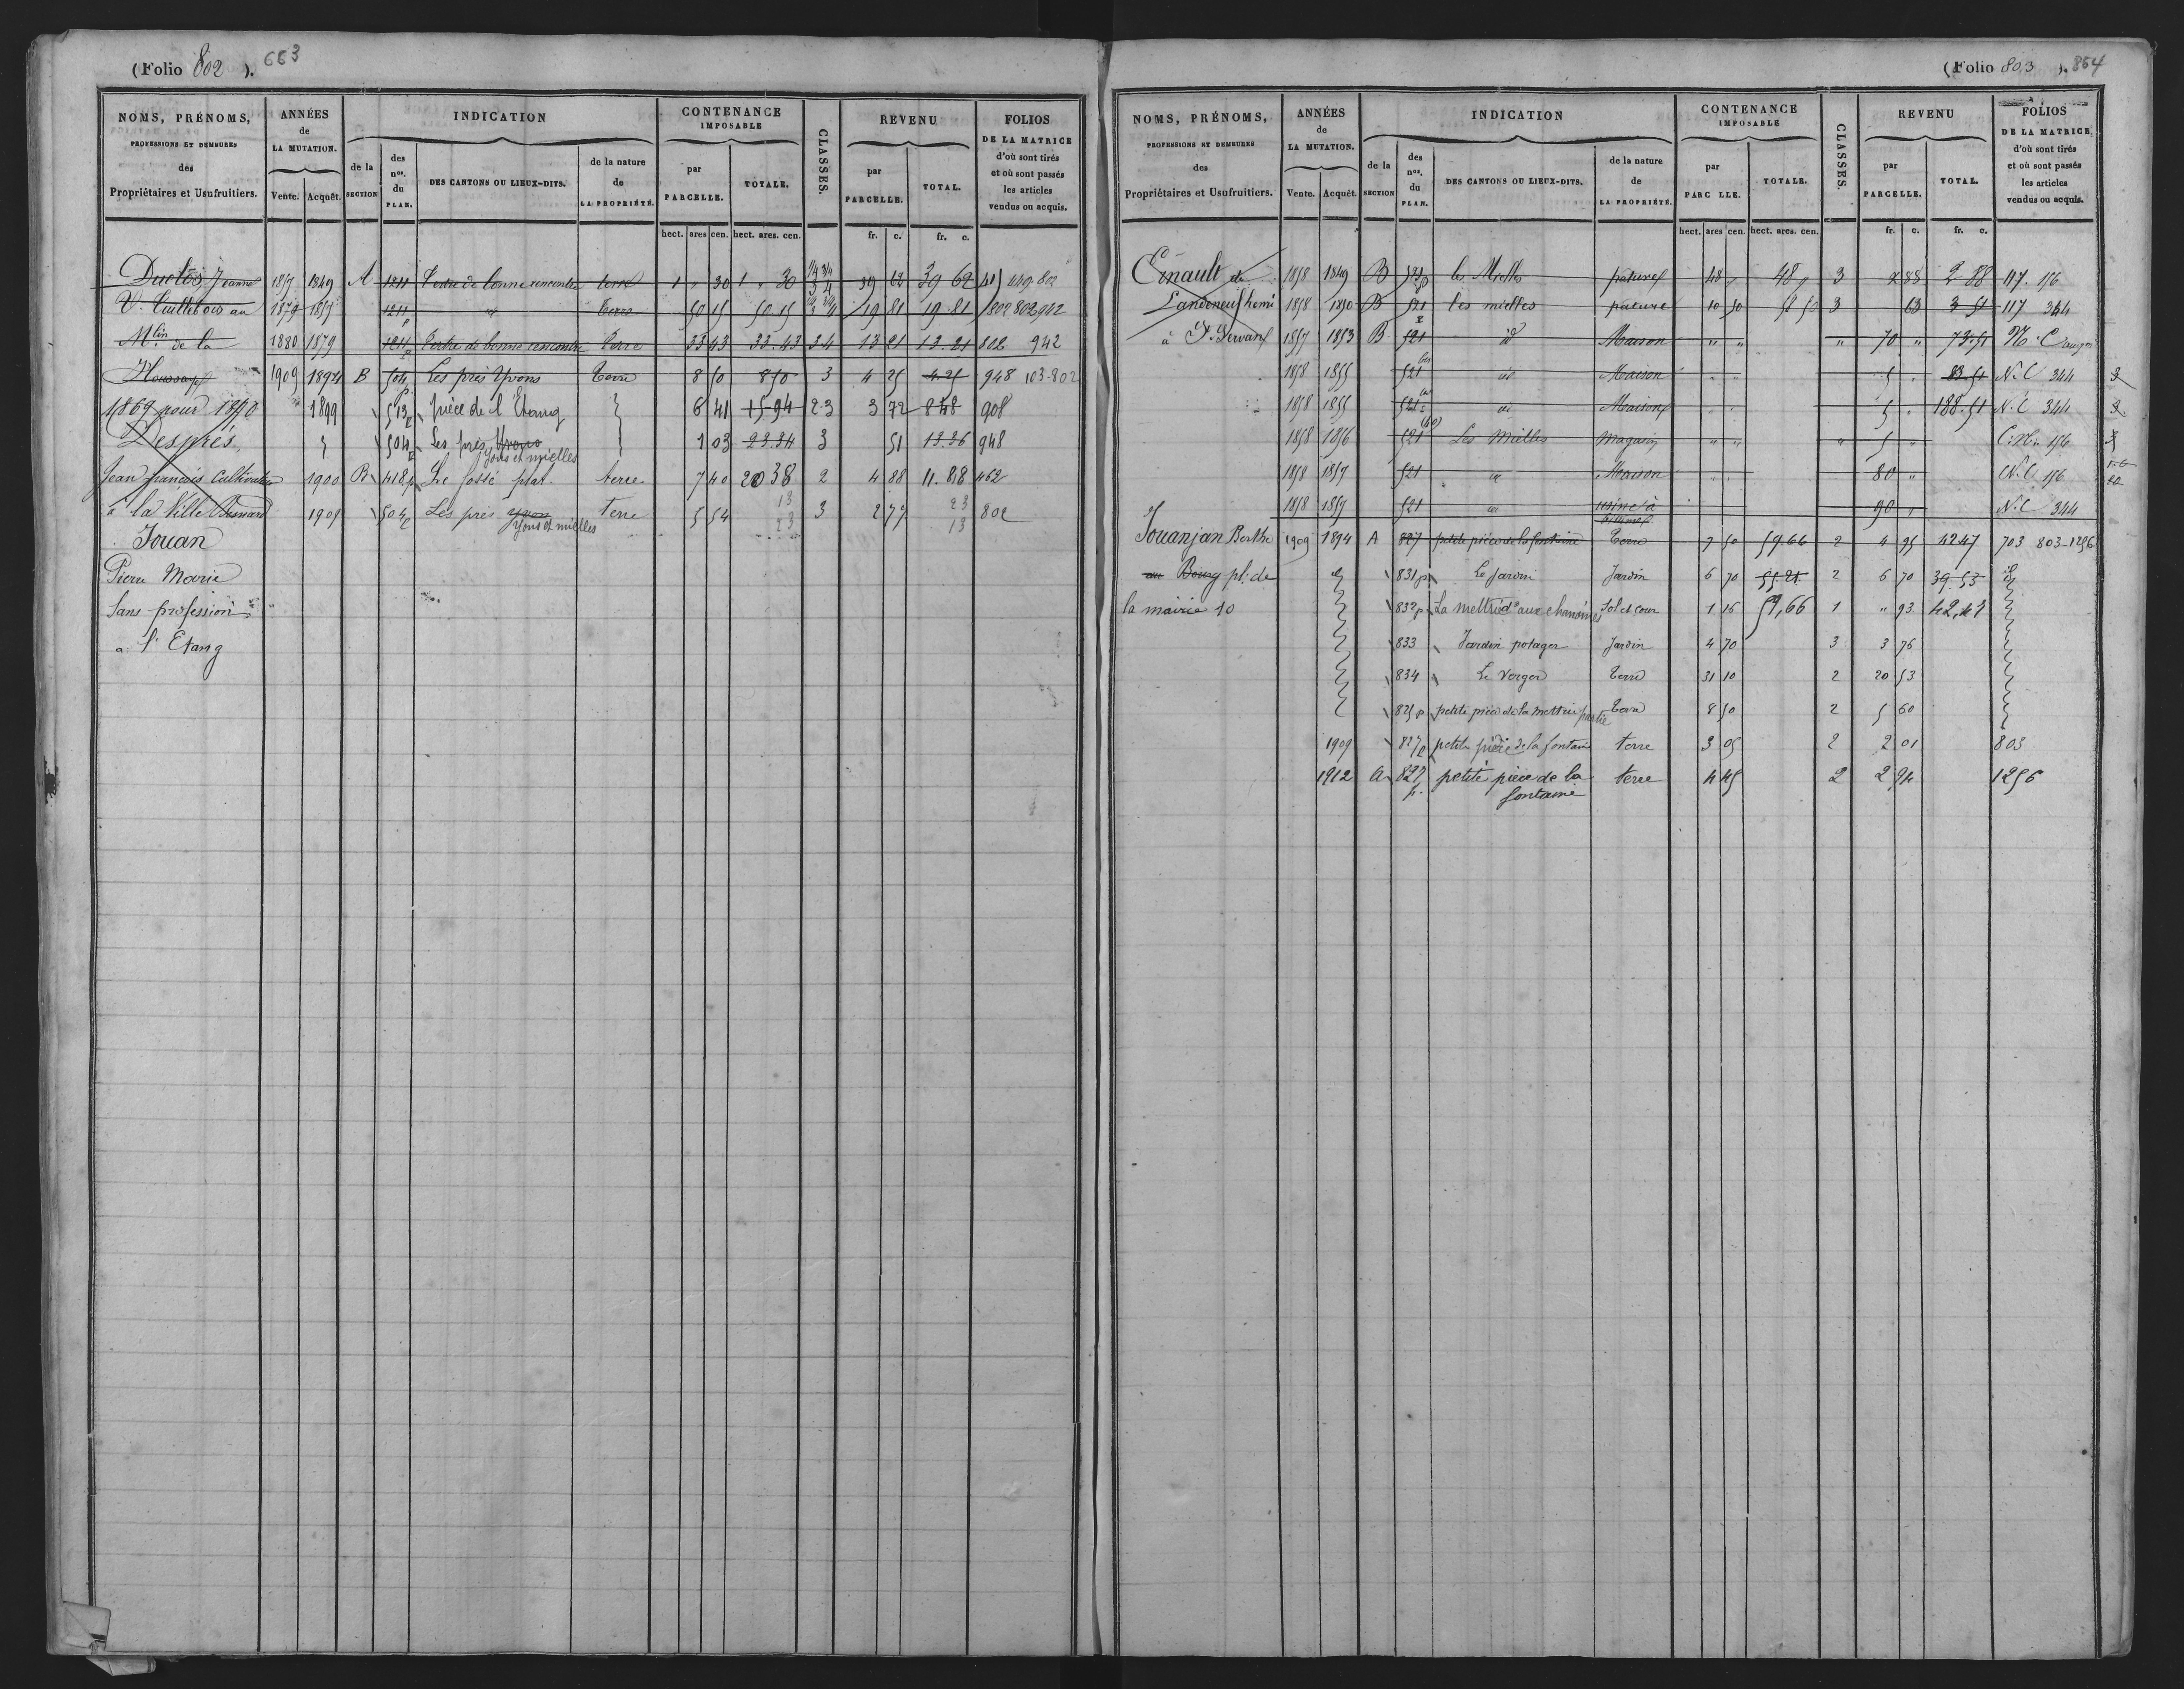 (Folio 802 ). 663
NOMS, PRÉNOMS,
PROFESSIONS ET DEMEURES
des
Propriétaires et Usufruitiers.
ANNÉES
de
LA MUTATION.
Vente. Acquêt.
INDICATION
de la
SECTION
des
nos.
du
PLAN.
DES CANTONS OU LIEUX-DITS.
de la nature
de
LA PROPRIÉTÉ.
CONTENANCE
IMPOSABLE
par
PARCELLE.
TOTALE.
CLASSES.
REVENU
par
PARCELLE.
TOTAL.
FOLIOS
DE LA MATRICE
d'où sont tirés
et où sont passés
les articles
vendus ou acquis.
hect. ares cen. hect. ares. cen. fr. c. fr. c.
Duclos Jeanne 1857 1849 A 1211 Tertre de bonne rencontre terre 1 " 30 1 " 30 39 62 39 62
V. Taillebois au 1879 1857 1211 p id Terre 50 15 50 15 19 81 19 81 802 802 942
Mlin de la 1880 1879 1211 p Tertre de bonne rencontre Terre 33 43 33.43 3 4 13 21 13.21 802 942
Houssaye 1909 1894 B 504 p Les prés Yvons Terre 8 50 8 50 3 4 25 4.25 948 103-802
1869 pour 1870 1899 513 p pièce de l'Etang 6 41 15-94 2-3 3 72 8 48 908
Després, 504 p Les prés Yvons 1 03 23.34 3 51 13.36 948
Yons et mielles
Jean francois Cultivateur 1900 B 418 p Le fossé plat. terre 7 40 20 38 2 4 88 11.88 462
à la Ville Besnard 1909 504 p Les prés Yvon terre 5 54 13 23 3 2 77 23 13 802
Yons et mielles
Jouan
Pierre Marie
Sans profession
a l'Etang
(Folio 803 ). 864
NOMS, PRÉNOMS,
PROFESSIONS ET DEMEURES
des
Propriétaires et Usufruitiers.
ANNÉES
de
LA MUTATION.
Vente. Acquêt.
INDICATION
de la
SECTION
des
nos.
du
PLAN.
DES CANTONS OU LIEUX-DITS.
de la nature
de
LA PROPRIÉTÉ.
CONTENANCE
IMPOSABLE
par
PARC LLE.
TOTALE.
CLASSES.
REVENU
par
PARCELLE.
TOTAL.
FOLIOS
DE LA MATRICE
d'où sont tirés
et où sont passés
les articles
vendus ou acquis.
hect. ares cen. hect. ares. cen. fr. c. fr. c.
de 1858 1849 B 521 p les Mielles pature 48 " 48 " 3 2 88 2 88 117. 156
henri 1858 1850 B 521 les mielles pature 10 50 58 50 3 63 3 51 117 344
à St. Servan 1857 1853 B 521 id Maison " " 70 " 73.51 N. C
1858 1855 521 id Maison 5 " 83.51 N.C 344
1858 1855 521 id Maison 5 " 188.51 N.C 344
1858 1856 521 Les Mielles magasin " " " 5 " 156
1858 1857 521 id Maison 80 " N.C 156
1858 1857 521 id usine à 90 " N.C 344
Jouanjan Berthe 1909 1894 A 827 petite pièce de la fontaine Terre 7 50 59.66 2 4 95 42 47 703 803-1256
au Bourg pl. de 831 p Le Jardin Jardin 6 70 55 21 2 6 70 39.53
la mairie 10 832 p La mettrie aux chanoines Sol et cour 1 16 59,66 1 " 93 42,47
833 Jardin potager Jardin 4 70 3 3 76
834 Le Verger Terre 31 10 2 20 53
825 p petite pièce de la mettrie partie Terre 8 50 2 5 60
1909 827 p petite pièce de la fontaine terre 3 05 2 2 01 803
1912 A 827 p. petite pièce de la terre 4 45 2 2 94 1256
fontaine